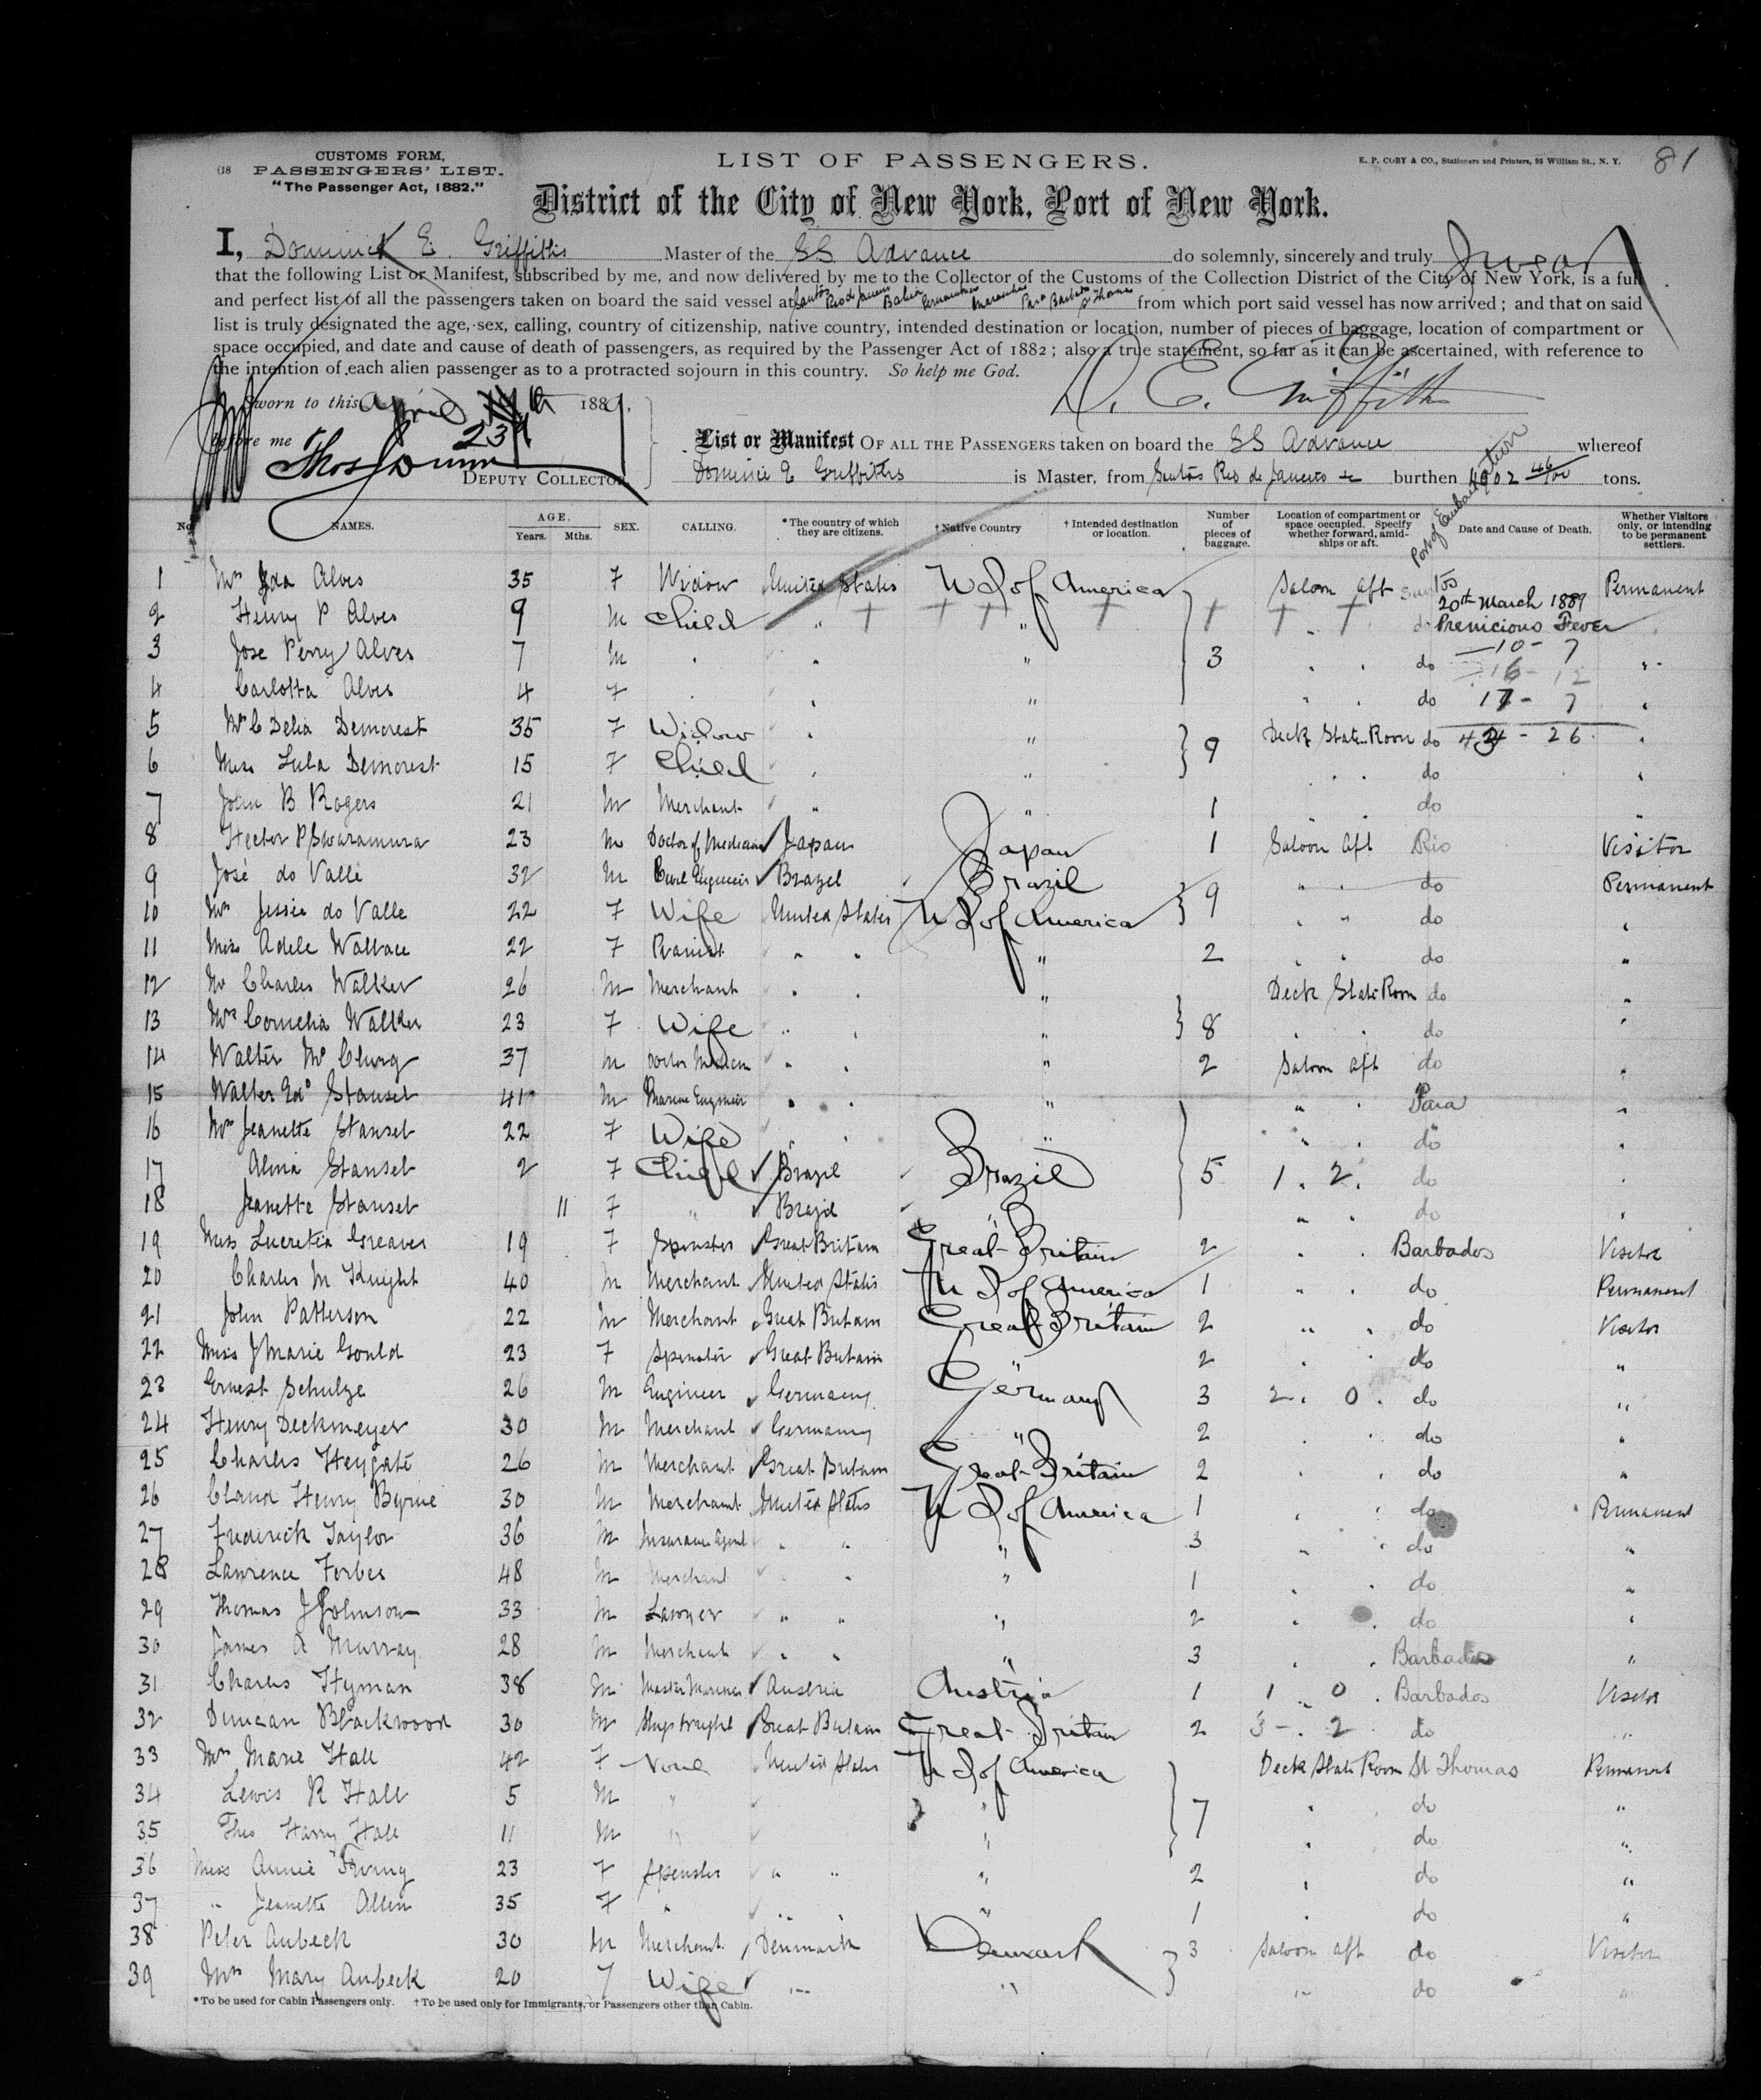 CUSTOMS FORM,
(18 PASSENGERS' LIST.
"The Passenger Act, 1882."
LIST OF PASSENGERS.
E. P. COBY & CO., Stationers and Printers, 95 William St., N. Y.
81
District of the City of New York, Port of New York.
I, Dominick E. Griffiths Master of the SS Advance do solemnly, sincerely and truly Swear
that the following List or Manifest, subscribed by me, and now delivered by me to the Collector of the Customs of the Collection District of the City of New York, is a full
and perfect list of all the passengers taken on board the said vessel at Santos Rio de Janeiro Bahia Pernambuco Maranham Para Barbados St Thomas from which port said vessel has now arrived; and that on said
list is truly designated the age, sex, calling, country of citizenship, native country, intended destination or location, number of pieces of baggage, location of compartment or
space occupied, and date and cause of death of passengers, as required by the Passenger Act of 1882; also a true statement, so far as it can be ascertained, with reference to
the intention of each alien passenger as to a protracted sojourn in this country. So help me God.
Sworn to this April 23 1889.
D. E. Griffiths
before me
Thos J Dunn
DEPUTY COLLECTOR.
List or Manifest OF ALL THE PASSENGERS taken on board the SS Advance whereof
Dominic E Griffiths is Master, from Santos Rio de Janeiro &c burthen 1902 46/100 tons.
No. NAMES. AGE. Years. Mths. SEX. CALLING. *The country of which they are citizens. †Native Country †Intended destination or location. Number of pieces of baggage. Location of compartment or space occupied. Specify whether forward, amidships or aft. Port of Embarkation Date and Cause of Death. Whether Visitors only, or intending to be permanent settlers.
1 Mrs Ida Alves 35 F Widow United States U S of America Saloon Aft Santos Permanent
2 Henry P Alves 9 M Child " " 1 " do 20th March 1889 Prenicious Fever
3 Jose Perry Alves 7 M " " " 3 " " do 10 - 7 "
16 - 12
4 Carlotta Alves 4 F " " " " " do 17 - 7 "
5 Mrs C Delia Demorest 35 F Widow " " 9 Deck State Room do 43 - 26 "
6 Miss Lula Demorest 15 F Child " " " " do "
7 John B Rogers 21 M Merchant " " 1 " " do "
8 Hector P Swaramura 23 M Doctor of Medicine Japan Japan 1 Saloon Aft Rio Visitor
9 José do Valle 32 M Civil Engineer Brazil Brazil 9 " " do Permanent
10 Mrs Jessie do Valle 22 F Wife United States U S of America " " do "
11 Miss Adele Wallace 22 F Pianist " " " 2 " " do "
12 Mr Charles Walker 26 M Merchant " " " Deck State Room do "
13 Mrs Cornelia Walker 23 F Wife " " " 8 " " do "
14 Walter McClurg 37 M Doctor Medicin " " " 2 Saloon Aft do "
15 Walter Edo Stansel 41 M Marine Engineer " " " " " Para "
16 Mrs Jeanette Stansel 22 F Wife " " " " " do "
17 Alma Stansel 2 F Child Brazil Brazil 5 1 . 2. do "
18 Jeanette Stansel 11 F " Brazil " " " do "
19 Miss Lucretia Greaves 19 F Spinster Great Britain Great Britain 2 " " Barbados Visitor
20 Charles M Knight 40 M Merchant United States U S of America 1 " " do Permanent
21 John Patterson 22 M Merchant Great Britain Great Britain 2 " " do Visitor
22 Miss J Marie Gould 23 F Spinster Great Britain " 2 " " do "
23 Ernest Schulze 26 M Engineer Germany Germany 3 2 . 0 . do "
24 Henry Deckmeyer 30 M Merchant Germany " 2 " " do "
25 Charles Heygate 26 M Merchant Great Britain Great Britain 2 " " do "
26 Claud Henry Byrne 30 M Merchant United States U S of America 1 " " do Permanent
27 Frederick Taylor 36 M Insurance Agent " " " 3 " " do "
28 Lawrence Forbes 48 M Merchant " " " 1 " " do "
29 Thomas J Johnson 33 M Lawyer " " " 2 " " do "
30 James A Murray 28 M Merchant " " " 3 " " Barbados "
31 Charles Hyman 38 M Master Mariner Austria Austria 1 1 . 0 . Barbados Visitor
32 Duncan Blackwood 30 M Shipwright Great Britain Great Britain 2 3 - . 2 do "
33 Mrs Marie Hall 42 F None United States U S of America Deck State Room St Thomas Permanent
34 Lewis R Hall 5 M " " 7 " " do "
35 Theo Harry Hall 11 M " " " do "
36 Miss Annie Irving 23 F Spinster " " " 2 " do "
37 " Jeanette Allen 35 F " " " " 1 " do "
38 Peter Aubeck 30 M Merchant Denmark Denmark 3 Saloon aft do Visitor
39 Mrs Mary Aubeck 20 F Wife " " " do "
*To be used for Cabin Passengers only. †To be used only for Immigrants, or Passengers other than Cabin.